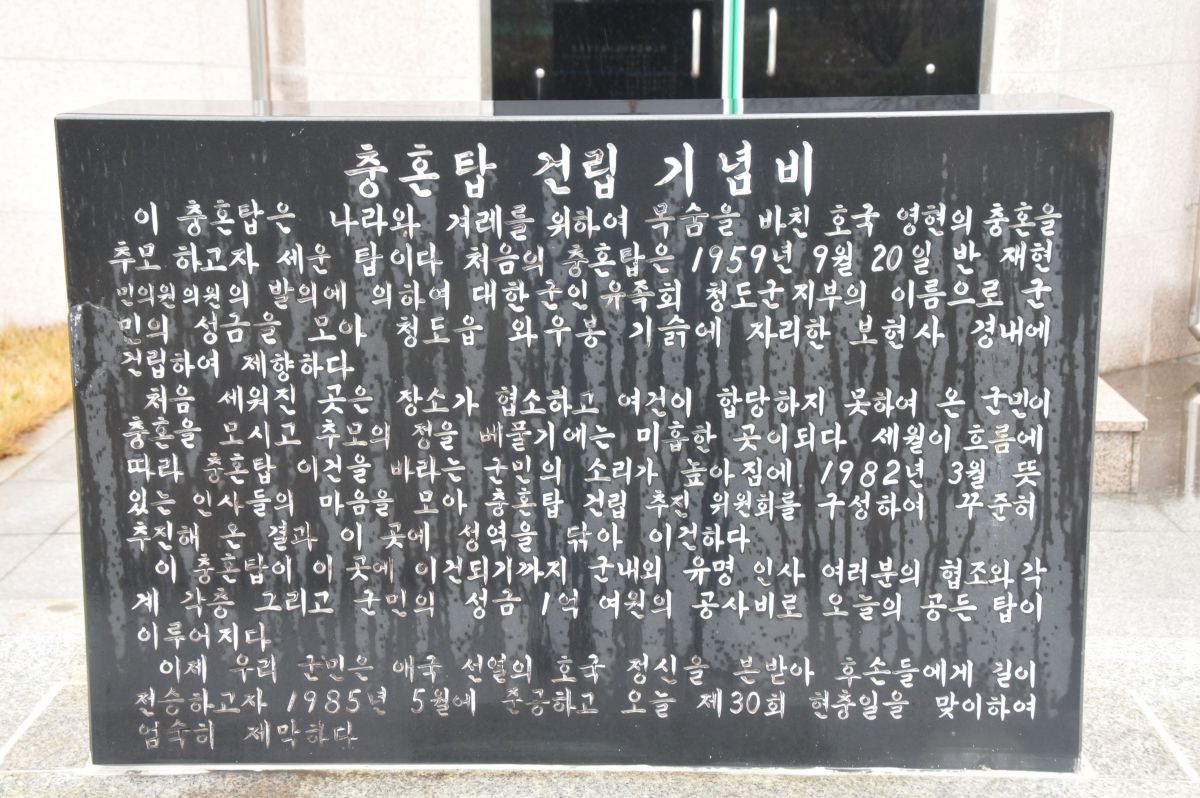 충혼탑 건립 기념비
이 충혼탑은 나라와 겨레를 위하여 목숨을 바친 호국 영현의 충혼을
추모 하고자 세운 탑이다 처음의 충혼탑은 1959년 9월 20일 반 재현
민의원의원의 발의에 의하여 대한군인유족회 청도군지부의 이름으로 군
민의 성금을 모아 청도읍 와우봉 기슭에 자리한 보현사 경내에
건립하여 제향하다
처음 세워진 곳은 장소가 협소하고 여건이 합당하지 못하여 온 군민이
충혼을 모시고 추모의 정을 베풀기에는 미흡한 곳이되다 세월이 흐름에
따라 충혼탑 이건을 바라는 군민의 소리가 높아짐에 1982년 3월 뜻
있는 인사들의 마음을 모아 충혼탑 건립 추진 위원회를 구성하여 꾸준히
추진해 온 결과 이 곳에 성역을 닦아 이건하다
이 충혼탑이 이 곳에 이건되기까지 군내외 유명 인사 여러분의 협조와 각
계 각층 그리고 군민의 성금 1억 여원의 공사비로 오늘의 공든 탑이
이루어지다
이제 우리 군민은 애국 선열의 호국 정신을 본받아 후손들에게 길이
전승하고자 1985년 5월에 준공하고 오늘 제30회 현충일을 맞이하여
엄숙히 제막하다